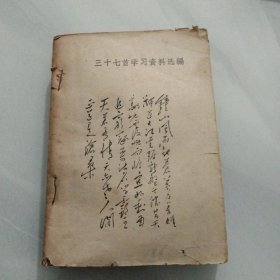 三十七首学习资料选编
鍾山風雨起蒼黄百万雄
師過大江虎踞龍盤今勝昔天
翻地覆慨而慷宜将剩勇
追窮寇不可沽名学霸王
天若有情天亦老人間
正道是滄桑